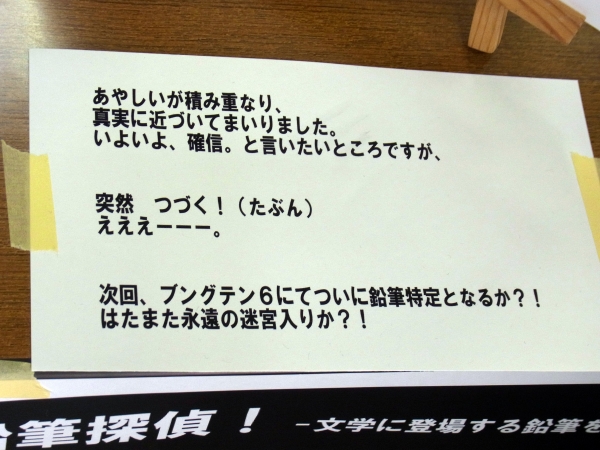 あやしいが積み重なり、
真実に近づいてまいりました。
いよいよ、確信。と言いたいところですが、
突然　つづく！（たぶん）
えええーーー。
次回、ブングテン６にてついに鉛筆特定となるか？！
はたまた永遠の迷宮入りか？！
鉛筆探偵！　－文学に登場する鉛筆を